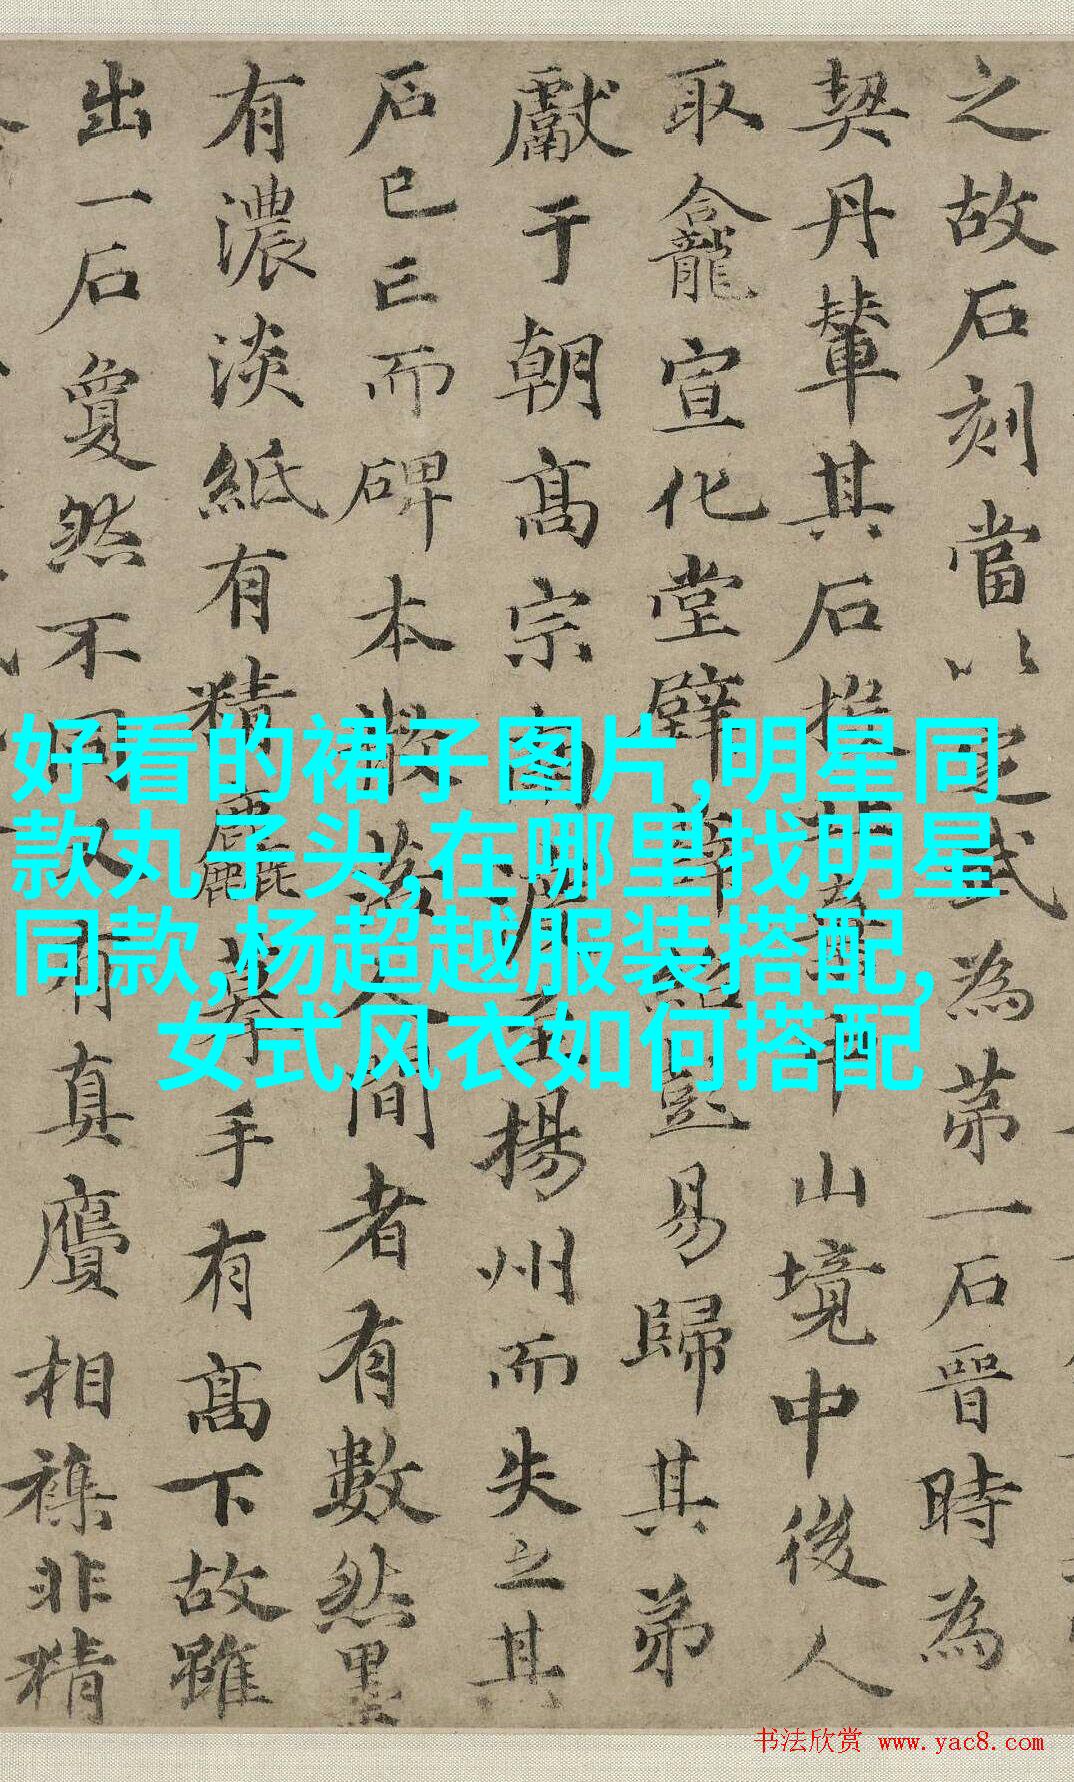 之故石刻當以定武為苐一石晉時為
契丹輦其石棄中山境中後人
取龕宣化堂壁薛紹彭易歸其弟
獻于朝高宗南渡至揚州而失之其
石已亡而碑本散落人間者有數然墨
有濃淡紙有精麤摹手有高下故雖
出一石夐然不同又有真贋相襍非精
好看的裙子图片,明星同
款丸子头,在哪里找明星
同款,杨超越服装搭配,
女式风衣如何搭配
书法欣赏 www.yac8.com